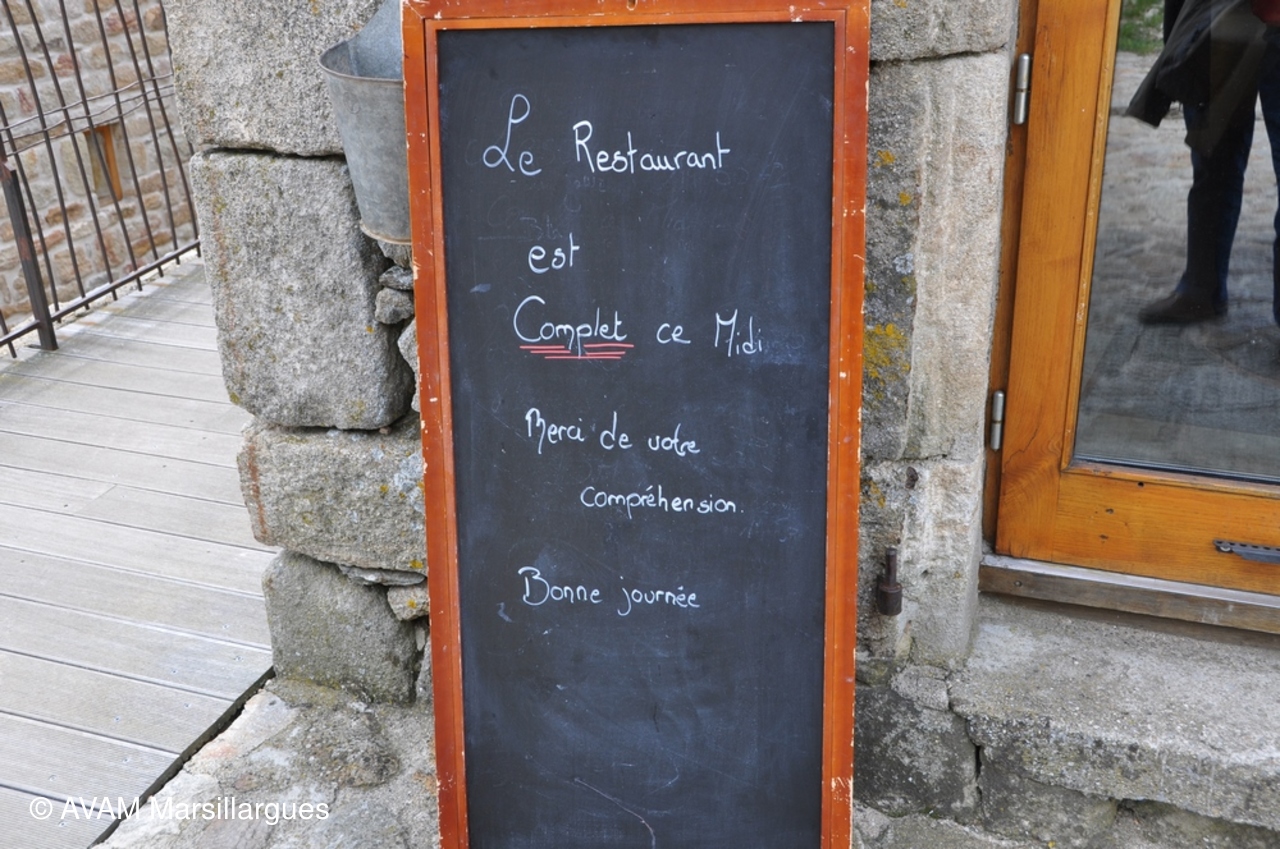 Le Restaurant
est
Complet ce Midi
Merci de votre
compréhension.
Bonne journée
© AVAM Marsillargues